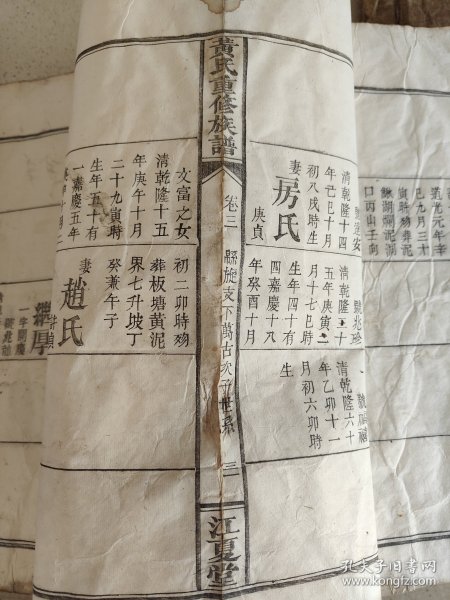 黃氏重修族譜
卷三
縣旋支下萬古次子世系
三
江夏堂
清乾隆十四
年己巳十月
初八戌時生
妻房氏
庚貞
清乾隆三十
五年庚寅十
月十七巳時
生年四十有
四嘉慶十八
年癸酉十月
清乾隆六十
年乙卯十一
月初六卯時
生
文富之女
清乾隆十五
年庚午十月
二十九寅時
生年五十有
一嘉慶五年
初二卯時歿
葬板塘黃泥
界七升坡丁
癸兼午子
妻趙氏
道光元年辛
巳九月三十
寅時歿葬泥
鰍湖爛泥湖
口丙山壬向
孔夫子旧书网